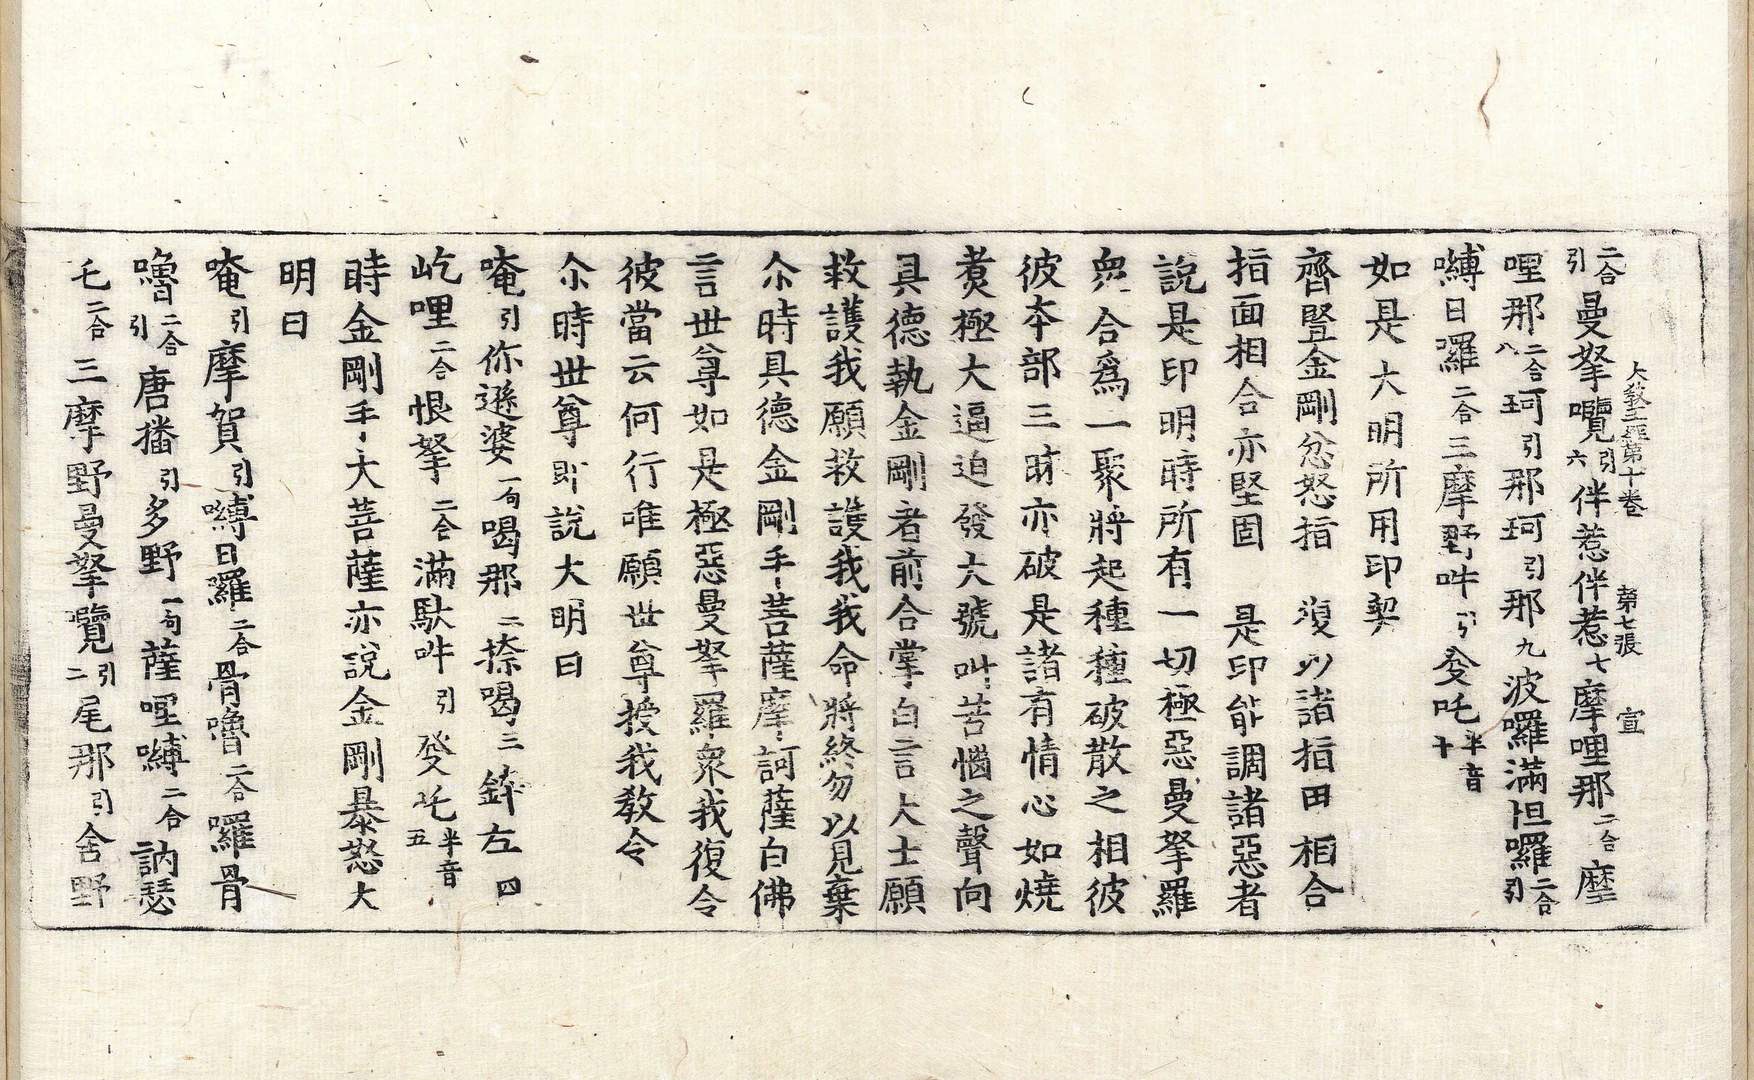 大教王經第十卷 第七張 宣
二合引曼拏囕引六伴惹伴惹七摩哩那二合摩
哩那二合八珂引那珂引那九波囉滿怛囉二合引
嚩日囉二合三摩野吽引發吒半音十
如是大明所用印契
齊竪金剛忿怒指 復以諸指面相合
指面相合亦堅固 是印能調諸惡者
說是印明時所有一切極惡曼拏羅
衆合爲一聚將起種種破散之相彼
彼本部三昧亦破是諸有情心如燒
煑極大逼迫發大號叫苦惱之聲向
具德執金剛者前合掌白言大士願
救護我願救護我我命將終勿以見棄
尒時具德金剛手菩薩摩訶薩白佛
言世尊如是極惡曼拏羅衆我復令
彼當云何行唯願世尊授我教令
尒時世尊即說大明曰
唵引你遜婆一句喝那二捺喝三鉢左四
屹哩二合恨拏二合滿馱吽引發吒半音五
時金剛手大菩薩亦說金剛暴怒大
明曰
唵引摩賀引嚩日囉二合骨嚕二合囉骨
嚕二合引唐播引多野一句薩哩嚩二合訥瑟
吒二合三摩野曼拏囕引二尾那引舍野